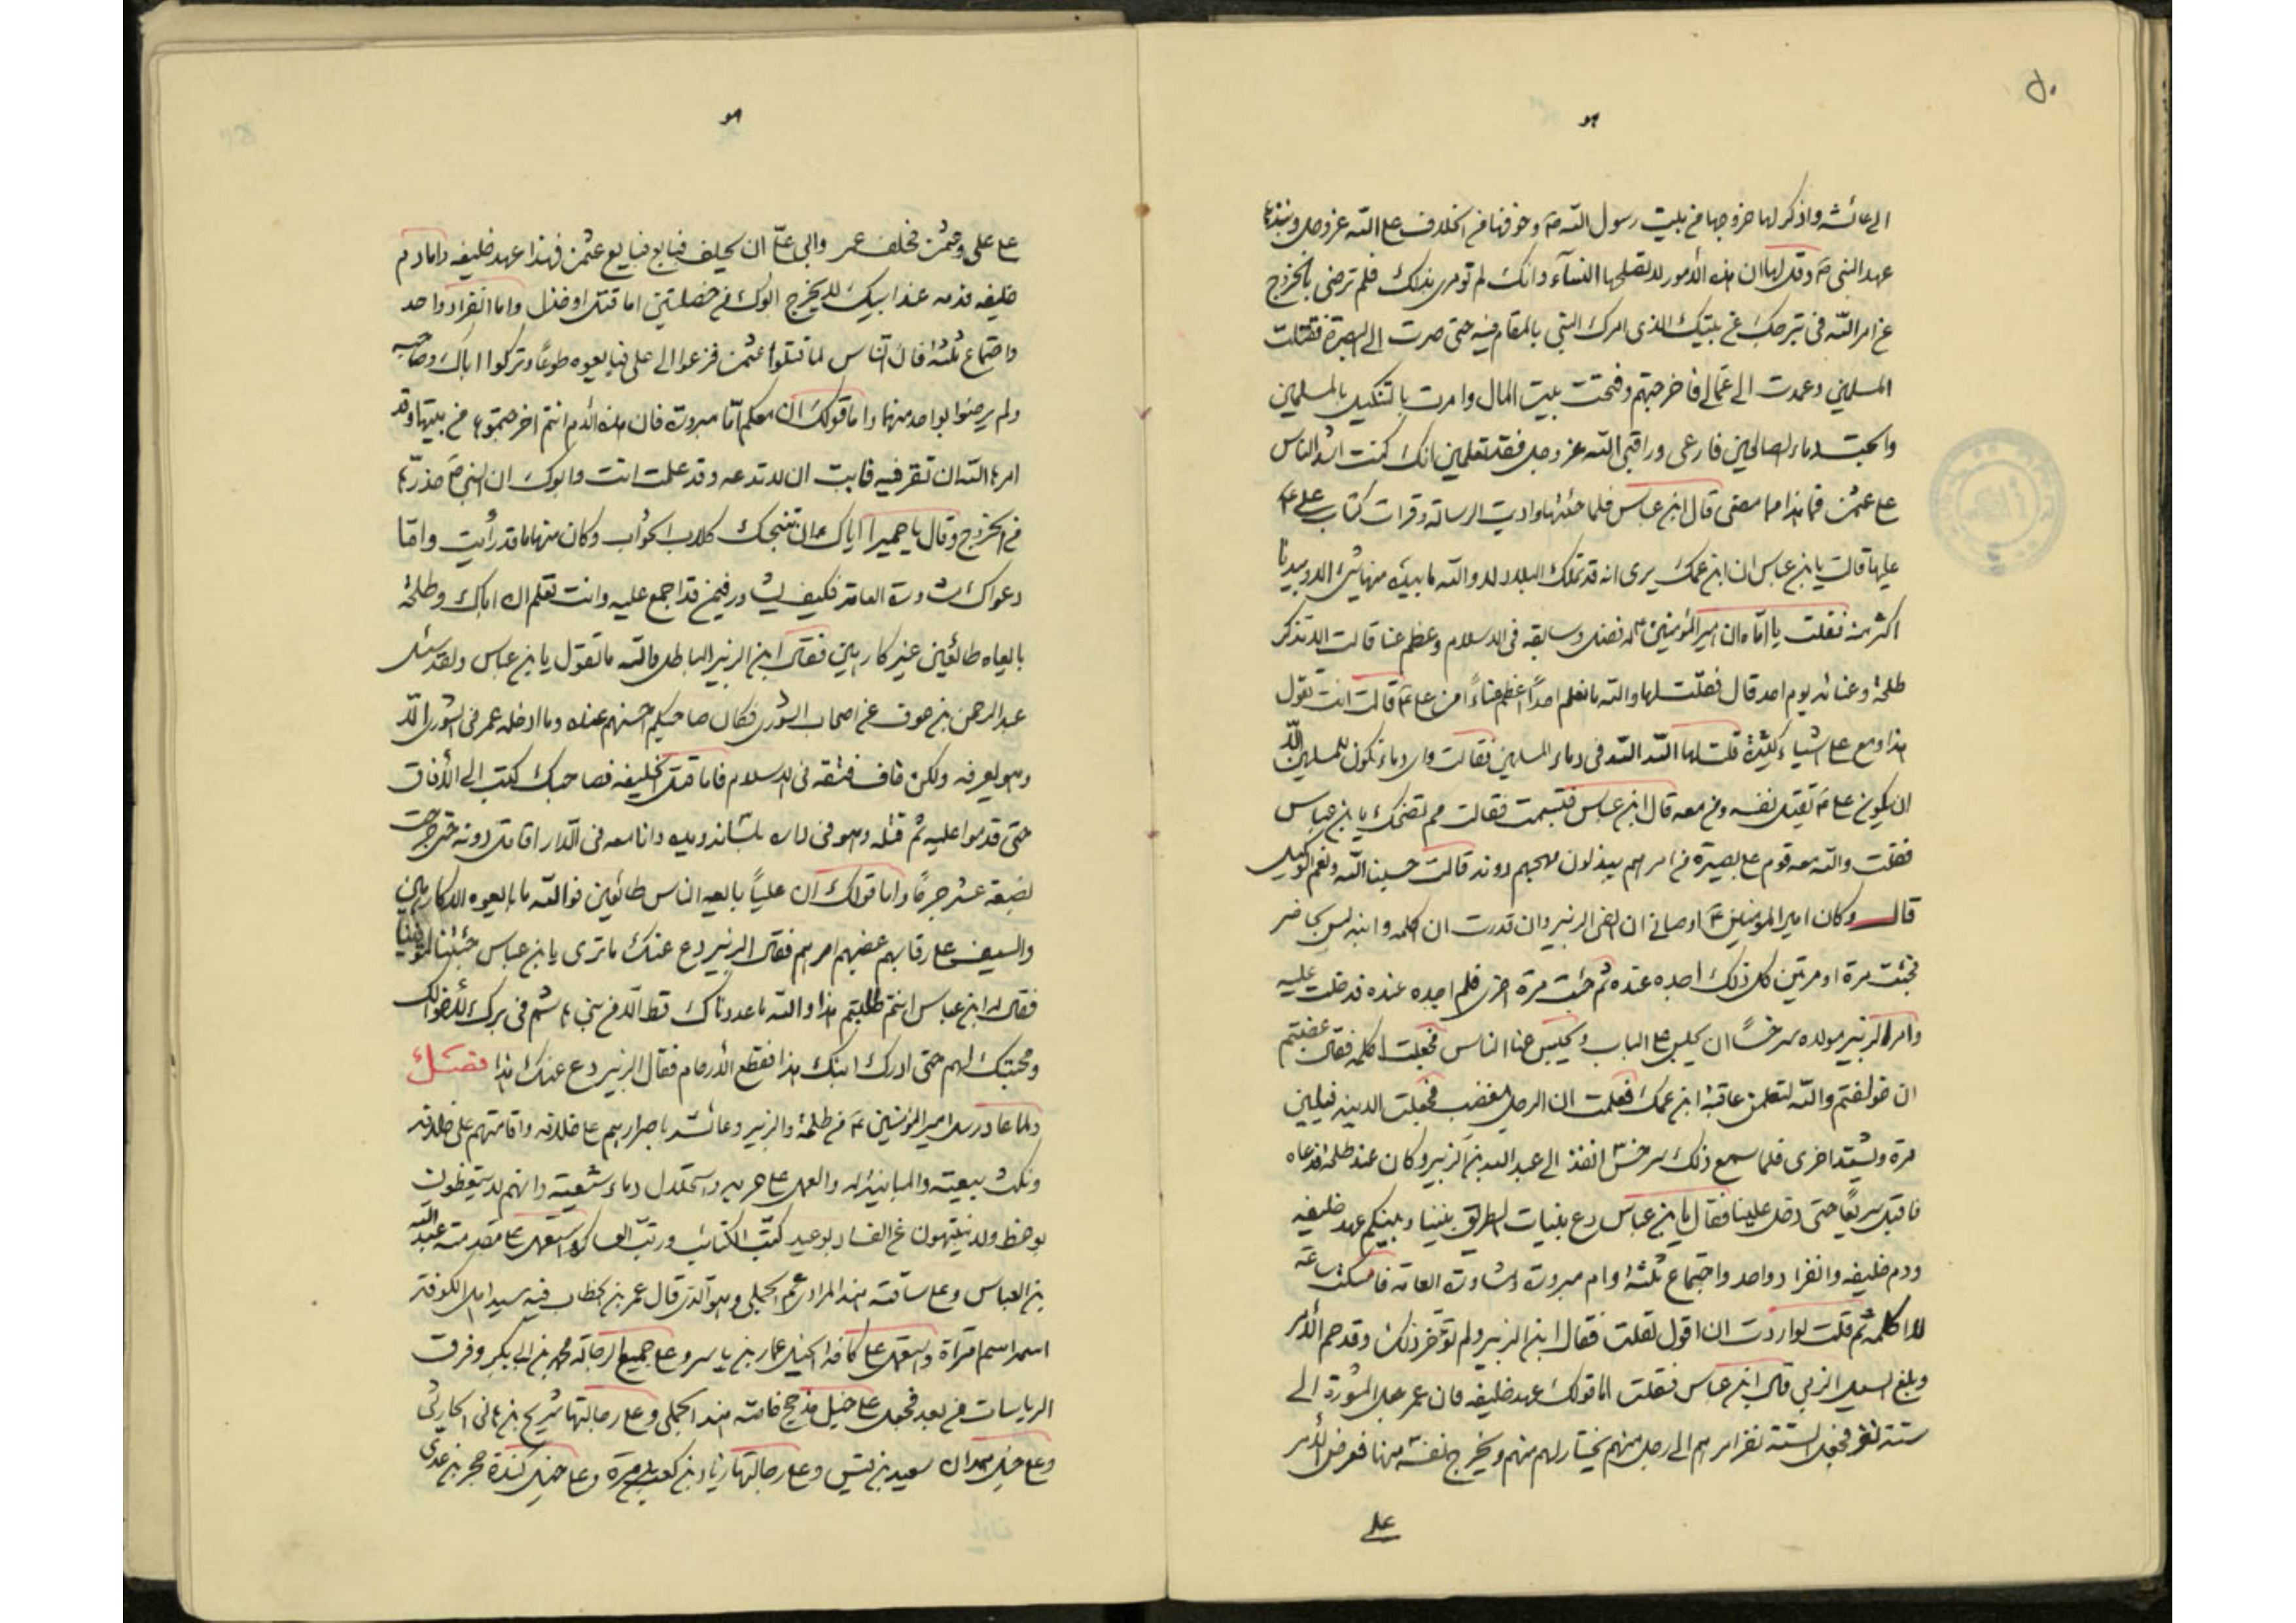 ٥٠
هو
الى عائشه واذكر لها خروجها من بيت رسول الله ص وخوفها من الخلاف على الله عز وجل ونبذها
عهد النبى ص وقل لها ان هذه الأمور لا تصلحها النسآء وانك لم تومرى بذلك فلم ترضى بالخروج
عن امر الله فى تبرجك عن بيتك الذى امرك النبى بالمقام فيه حتى صرت الى البصرة فقتلت
المسلمين وعمدت الى عمالى فاخرجتهم وفتحت بيت المال وامرت بالتنكيل بالمسلمين
وابحت دماء الصالحين فارعى وراقبى الله عز وجل فقد تعلمين انك كنت اشد الناس
على عثمن فما هذا مما مضى قال ابن عباس فلما جئتها واديت الرساله وقرات كتاب على ع
عليها قالت يابن عباس ان ابن عمك يرى انه قد تملك البلاد لا والله ما بيده منها شئ الا وبيدنا
اكثر منه فقلت يا اماه ان امير المؤمنين ع له فضل وسابقه فى الاسلام وعظم عنا قالت الا تذكر
طلحة وعنائه يوم احد قال فقلت لها والله ما نعلم احداً اعظم عناءً من على ع قالت انت تقول
هذا ومع على اشياء كثيرة قلت لها الله الله فى دماء المسلمين فقالت واى دماء تكون للمسلمين الا
ان يكون على ع يقتل نفسه ومن معه قال ابن عباس فتبسمت فقالت مم تضحك يا بن عباس
فقلت والله معه قوم على بصيرة من امرهم يبذلون مهجهم دونه قالت حسبنا الله ونعم الوكيل
قال وكان امير المؤمنين ع اوصانى ان القى الزبير وان قدرت ان اكلمه وابنه ليس بحاضر
فجئت مرة او مرتين كل ذلك اجده عنده ثم جئت مرة اخرى فلم اجده عنده فدخلت عليه
وامر الزبير مولاه سرخساً ان يجلس على الباب ويحبس عنا الناس فجعلت اكلمه فقال عضبتم
ان خولفتم والله لتعلمن عاقبة ابن عمك فعلمت ان الرجل مغضب فجعلت الاينه فيلين
مرة ويشتد اخرى فلما سمع ذلك سرخس انفذ الى عبد الله بن الزبير وكان عند طلحة فدعاه
فاقبل سريعاً حتى دخل علينا فقال يابن عباس دع بنيات الطريق بيننا وبينكم عهد خليفه
ودم خليفه وانفراد واحد واجتماع ثلثة وام مبرورة ومشاورة العامه فامسكت ساعة
لا اكلمه ثم قلت لو اردت ان اقول لقلت فقال ابن الزبير ولم تؤخر ذلك وقد حم الأمر
وبلغ السيل الزبى قال ابن عباس فقلت اما قولك عهد خليفه فان عمر جعل المشورة الى
ستة نفر فجعل الستة نفر امرهم الى رجل منهم يختار لهم منهم ويخرج نفسه منها فعرض الأمر
على
هو
على على وعثمن فحلف عمر وابى على ان يحلف فبايع عثمن فهذا عهد خليفه واما دم
خليفه فدمه عند ابيك لا يخرج ابوك من خصلتين اما قتل او خذل واما انفراد واحد
واجتماع ثلثه فان الناس لما قتلوا عثمن فزعوا الى على فبايعوه طوعاً وتركوا اباك وصاحبه
ولم يرضوا بواحد منهما واما قولك ان معكم امّاً مبرورة فان هذه الأم انتم اخرجتموها من بيتها وقد
امرها الله ان تقر فيه فابيت ان لا تدعه وقد علمت انت وابوك ان النبى ص حذرها
من الخروج وقال يا حميرا اياك ان تنبحك كلاب الحوأب وكان منها ما قد رأيت واما
دعواك مشاورة العامة فكيف يشاور فيمن قد اجمع عليه وانت تعلم ان اباك وطلحة
بايعاه طائعين غير كارهين فقال ابن الزبير الباطل والله ما تقول يابن عباس ولقد سئل
عبد الرحمن بن عوف عن اصحاب الشورى فكان صاحبكم اخسهم عنده وما ادخله عمر فى الشورى الا
وهو يعرفه ولكن خاف فتقه فى الاسلام فاما قتل الخليفه فصاحبك كتب الى الأفاق
حتى قدموا عليه ثم قتله وهو فى داره بلسانه ويده وانا معه فى الدار اقاتل دونه حتى جرحت
بضعه عشر جرحاً واما قولك ان علياً بايعه الناس طائعين فوالله ما بايعوه الا كارهين
والسيف على رقابهم غصبهم امرهم فقال الزبير دع عنك ما ترى يا بن عباس جئتنا لتوفينا
فقال له ابن عباس انتم طلبتم هذا والله ما عددناك قط الا من بنى هاشم فى برك لأخوالك
ومحبتك لهم حتى ادرك ابنك هذا فقطع الأرحام فقال الزبير دع عنك هذا فصل
ولما عاد رسل امير المؤمنين ع من طلحة والزبير وعائشه باصرارهم على خلافه واقامتهم على خلافه
ونكث بيعته والمباينة له والعمل على حربه واستحلال دماء شيعته وانهم لا يتعظون
بوعظ ولا ينتهون عن الفساد بوعيد كتب الكتائب ورتب العساكر واستعمل على مقدمته عبد الله
بن العباس وعلى ساقته هند المرادى ثم الجملى وهو الذى قال عمر بن الخطاب فيه سيد اهل الكوفة
اسمه اسم امراة واستعمل على كافه الخيل عمار بن ياسر وعلى جميع الرجاله محمد بن ابى بكر وفرق
الرياسات من بعد فجعل على خيل مذحج خاصه هند الجملى وعلى رجالتها شريح بن هانى الحارثى
وعلى خيل همدان سعيد بن قيس وعلى رجالتها زياد بن كعب بن مرة وعلى خيل كندة حجر بن عدى